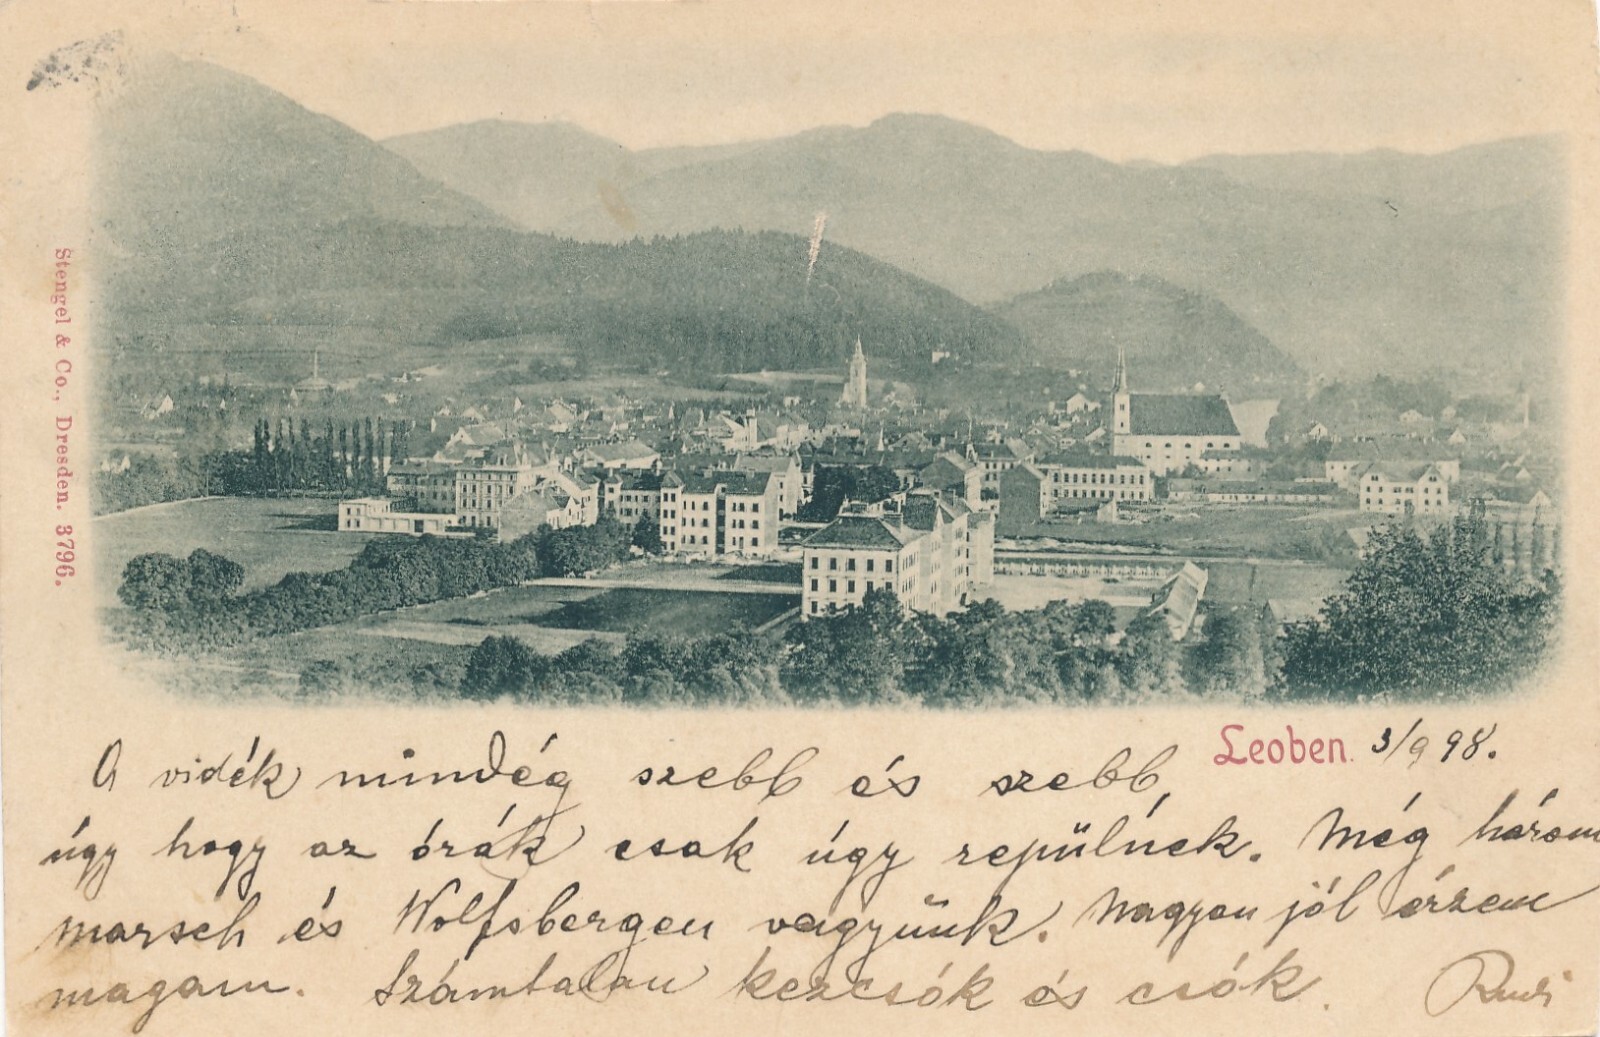 Stengel & Co., Dresden. 3796.
Leoben. 3/9 98.
A vidék mindég szebb és szebb,
úgy hogy az órák csak úgy repülnek. Még három
marsch és Wolfsbergen vagyünk. Nagyon jól érzem
magam. Számtalan kezcsók és csók.
Rudi